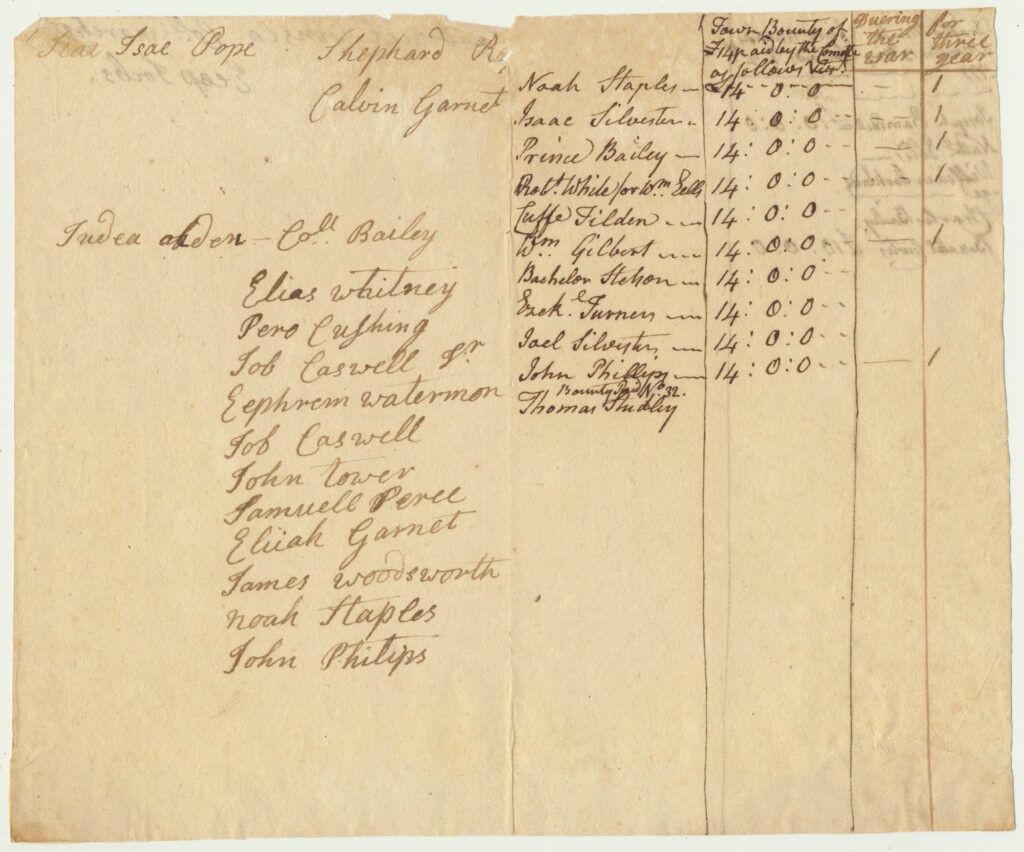 Isac Pope Shephard
Calvin Garnet
Judea alden - Coll Bailey
Elias whitney
Pero Cushing
Job Caswell Sr
Eephrem watermon
Job Caswell
John tower
Samuell Perce
Eliiah Garnet
James woodsworth
noah Staples
John Philips
Town Bounty of
£14 paid by the
as follows Viz.
Duering the war
for three year
Noah Staples - 14 0 0 - - 1
Isaac Silvester - 14: 0: 0 - - 1
Prince Bailey - 14: 0: 0 - - 1
Robt. White for Wm. Eells 14: 0: 0 - - 1
Cuffe Tilden - - 14: 0: 0 - -
Wm Gilbert - - - 14: 0: 0 - - 1
Bachelor Stetson - - 14: 0: 0 - -
Ezekel Turner - - 14: 0: 0 - -
Joel Silvester - - 14: 0: 0 - -
John Phillips - - 14: 0: 0 - - 1
Bounty Paid No. 32.
Thomas Studley